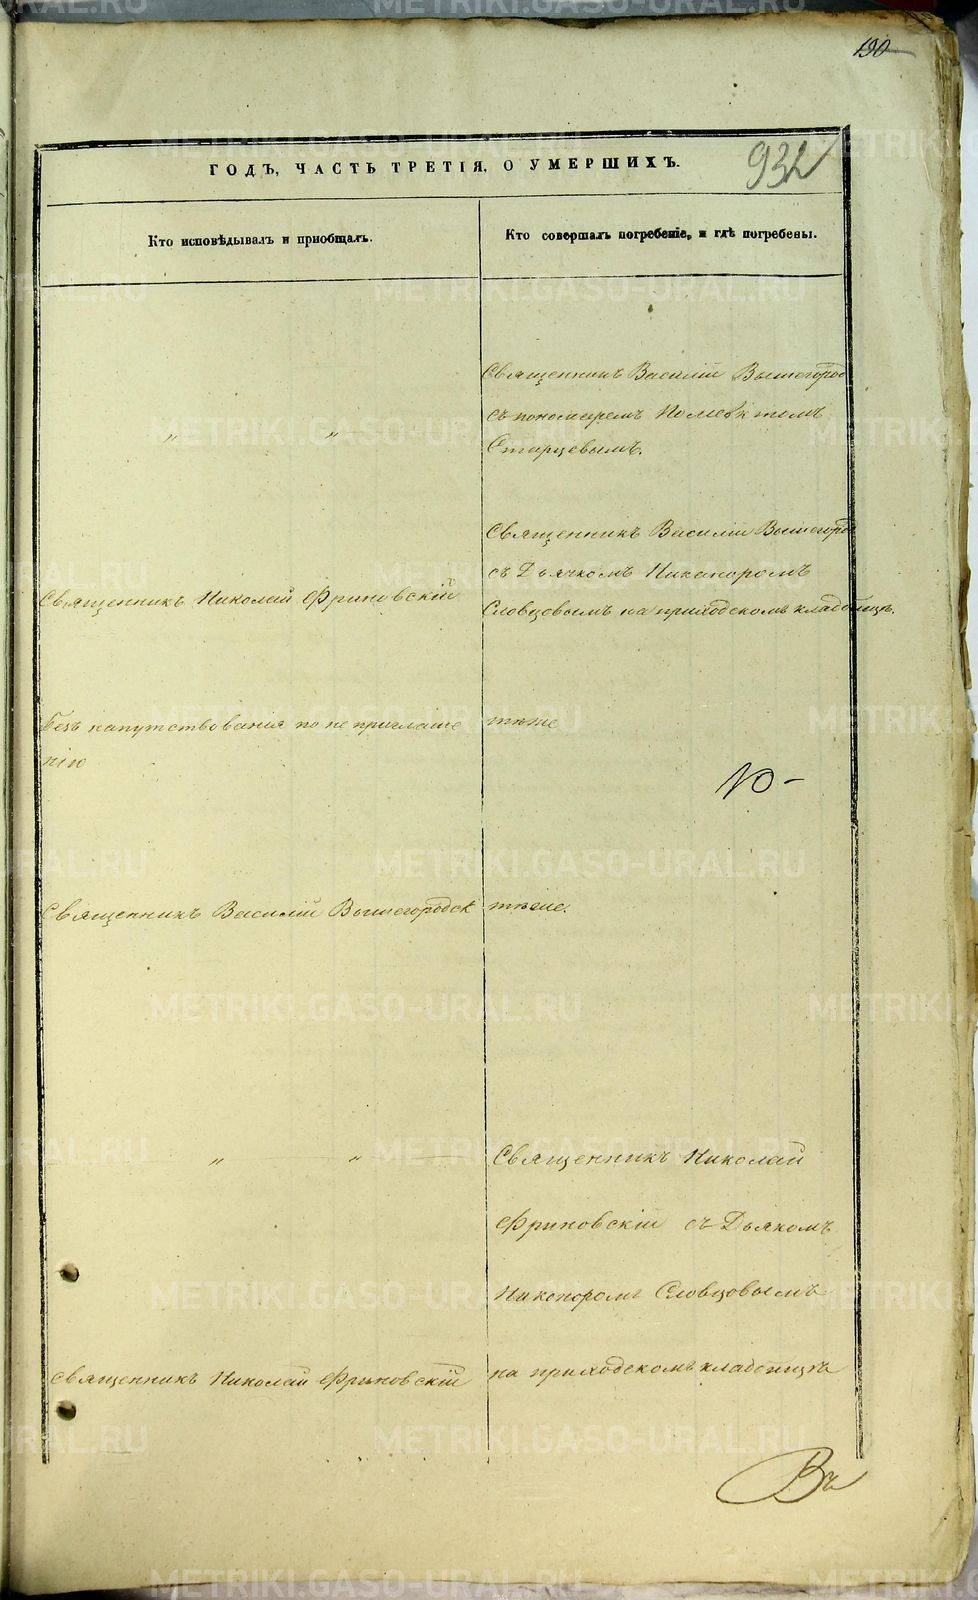 190
932
ГОДЪ, ЧАСТЬ ТРЕТІЯ, О УМЕРШИХЪ.
Кто исповѣдывалъ и приобщалъ.
Кто совершалъ погребеніе, и гдѣ погребены.
Священникъ Василій Вышегород
съ пономаремъ
„ „
Старцевымъ.
Священникъ Василій Вышегород
съ Дьячкомъ Никаноромъ
Священникъ Николай Фриновскій
Словцовымъ на приходскомъ кладбищѣ.
Безъ напутствованія по не приглаше
тѣже
нію
Священникъ Василій Вышегородск
тѣже.
„ „
Священникъ Николай
Фриновскій съ Дьякомъ
Никоноромъ Словцовымъ
Священникъ Николай Фриновскій
на приходскомъ кладбищѣ
Въ
METRIKI.GASO-URAL.RU